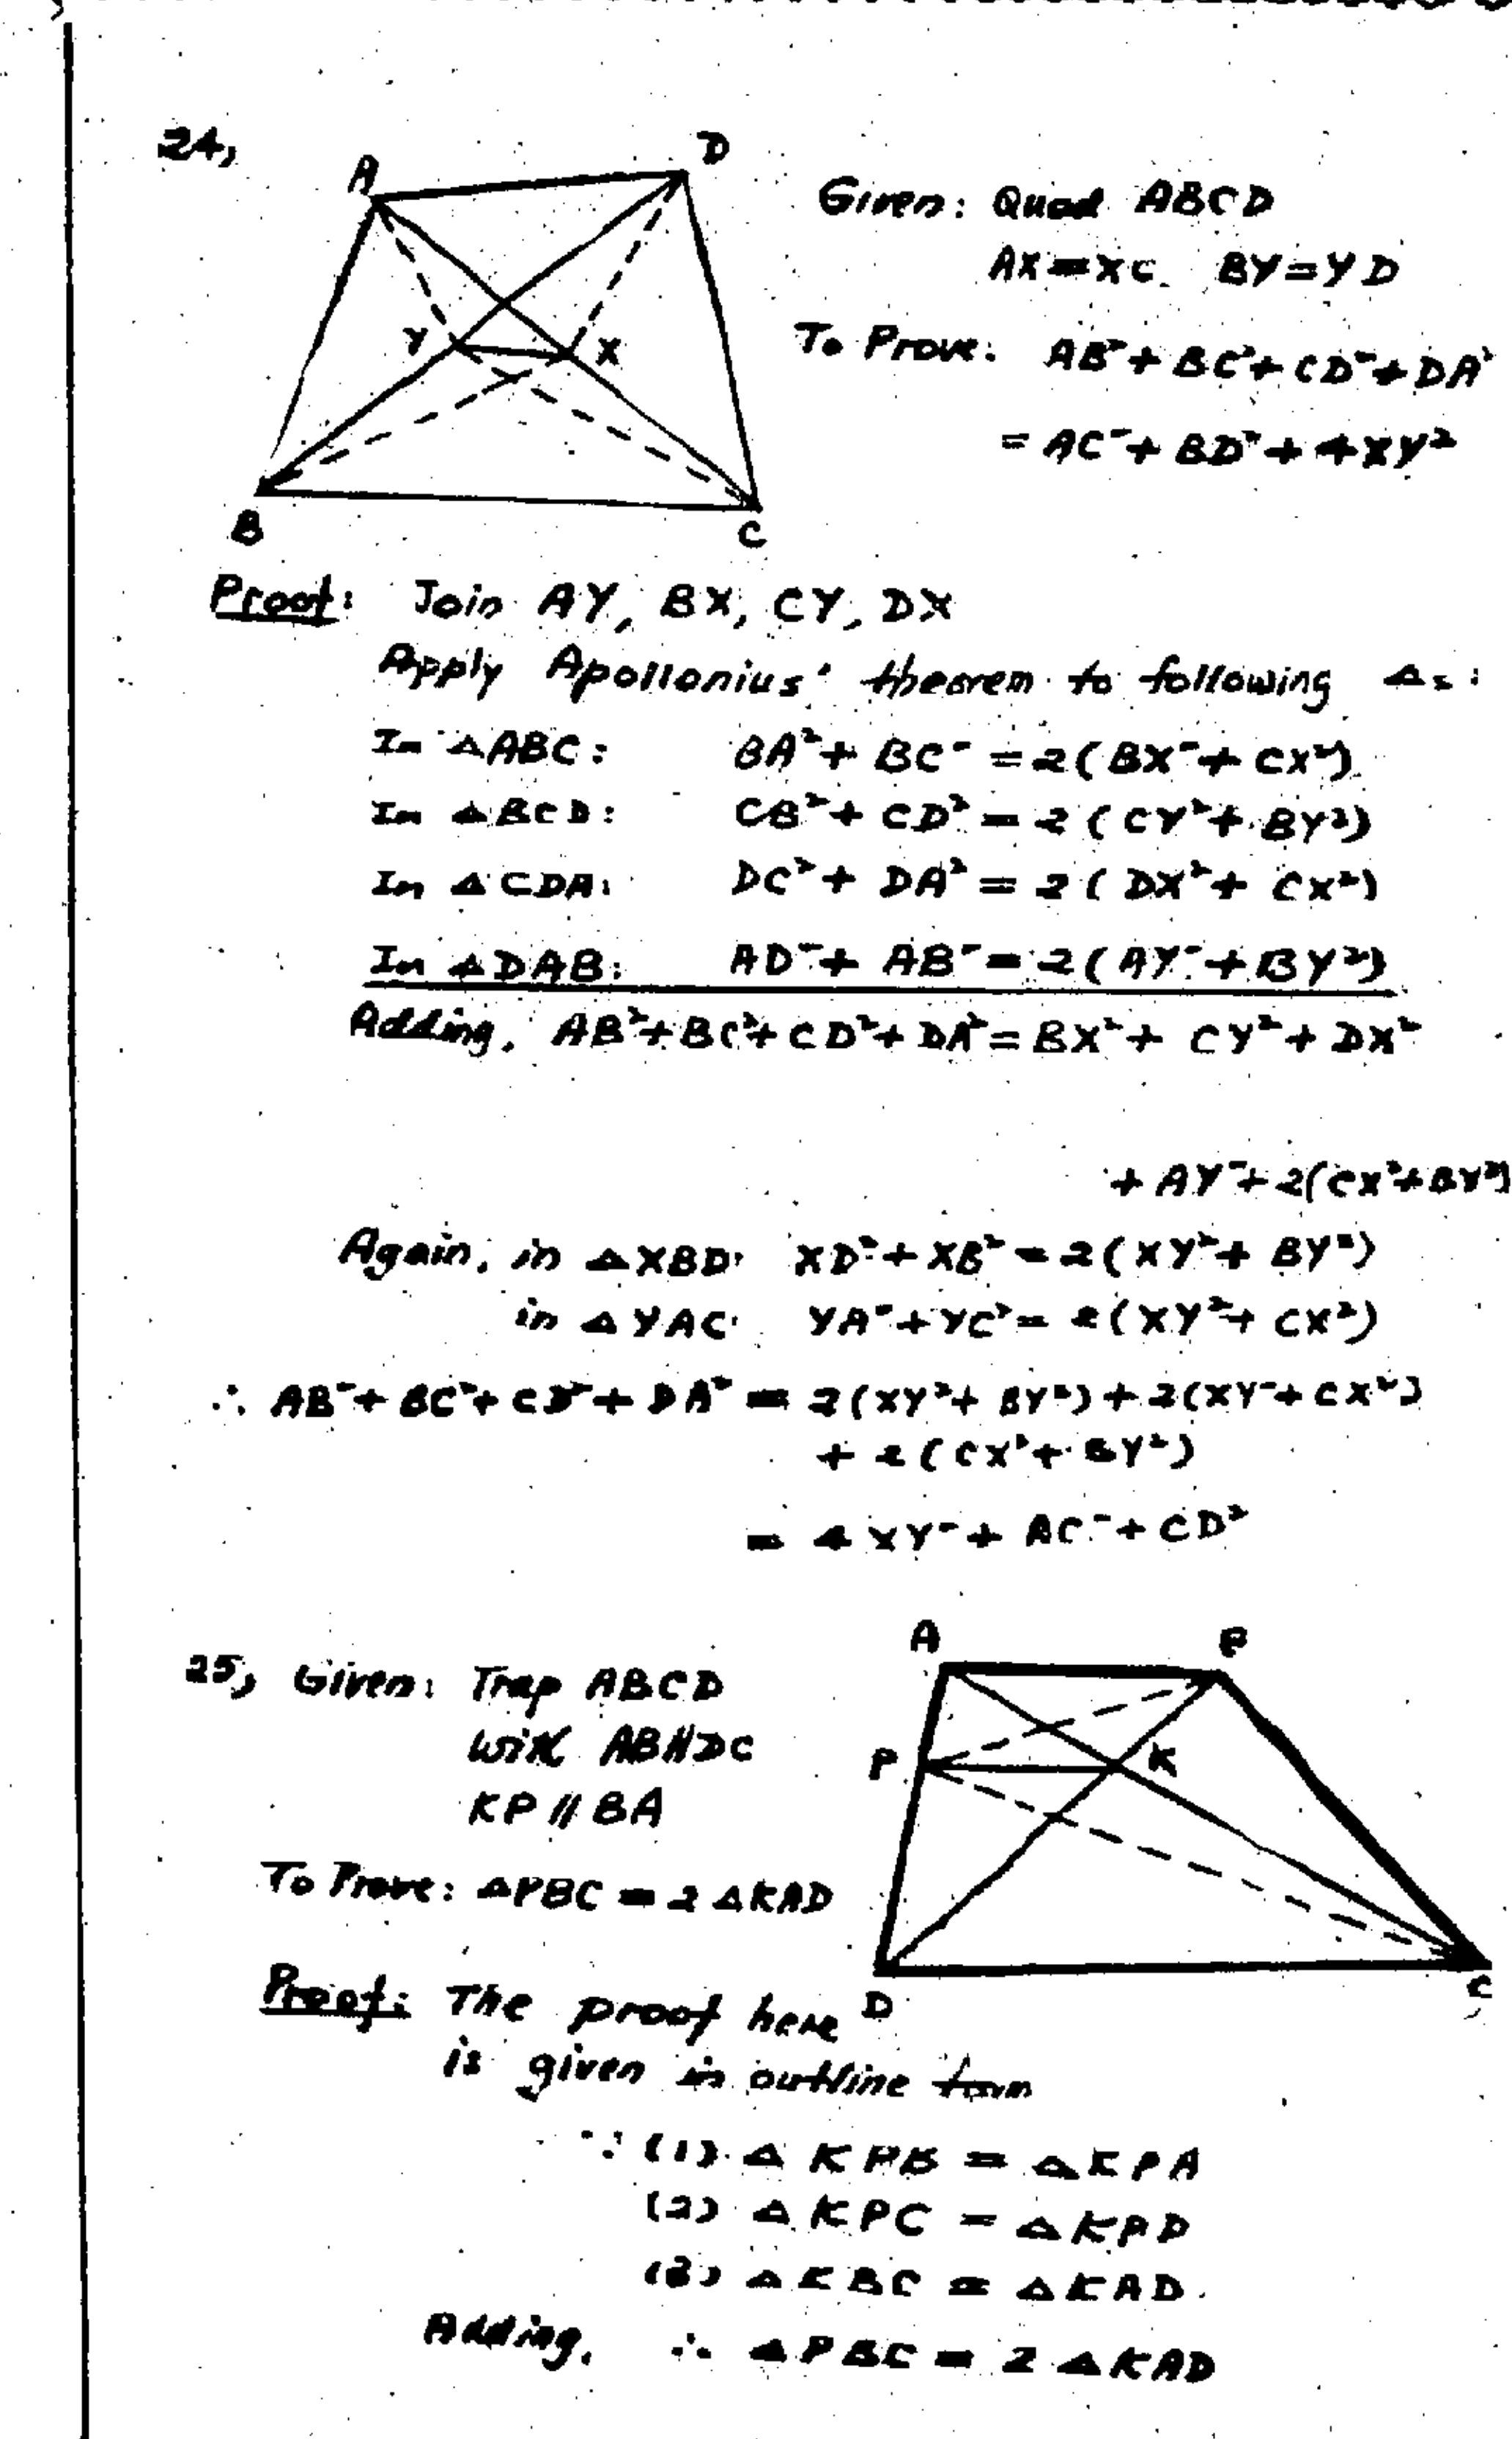 24,
A
D
Y
X
B
C
Given: Quad ABCD
AX = XC BY = YD
To Prove: AB² + BC² + CD² + DA²
= AC² + BD² + 4XY²
Proof: Join AY, BX, CY, DX
Apply Apollonius' theorem to following Δs:
In ΔABC: BA² + BC² = 2(BX² + CX²)
In ΔBCD: CB² + CD² = 2(CY² + BY²)
In ΔCDA: DC² + DA² = 2(DX² + CX²)
In ΔDAB: AD² + AB² = 2(AY² + BY²)
Adding, AB² + BC² + CD² + DA² = BX² + CY² + DX²
+ AY² + 2(CX² + BY²)
Again, in ΔXBD: XD² + XB² = 2(XY² + BY²)
in ΔYAC: YA² + YC² = 2(XY² + CX²)
∴ AB² + BC² + CD² + DA² = 2(XY² + BY²) + 2(XY² + CX²)
+ 2(CX² + BY²)
= 4XY² + AC² + CD²
25, Given: Trap ABCD
with AB∥DC
KP ∥ BA
To Prove: ΔPBC = 2 ΔKAD
A
B
P
K
D
C
Proof: The proof here
is given in outline form
∵ (1) Δ KPB = ΔKPA
(2) Δ KPC = ΔKPD
(3) Δ KBC = ΔKAD
Adding, ∴ ΔPBC = 2 ΔKAD